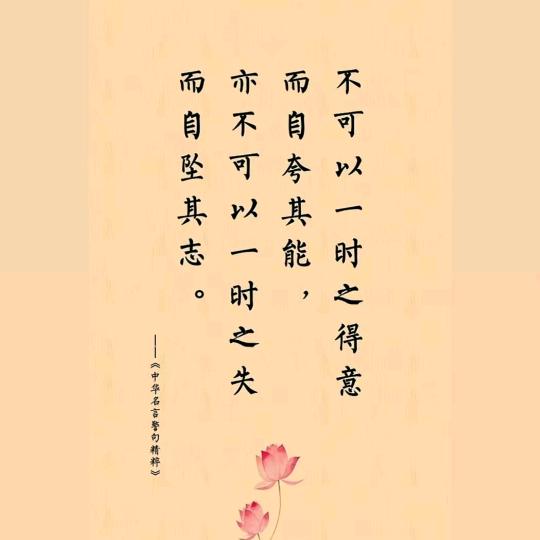 不可以一时之得意
而自夸其能，
亦不可以一时之失
而自坠其志。
——《中华名言警句精粹》